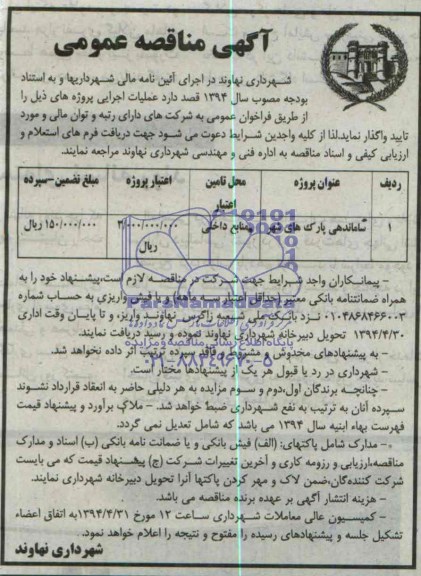 آگهی مناقصه عمومی
شهرداری نهاوند در اجرای آئین نامه مالی شهرداریها و به استناد
بودجه مصوب سال ۱۳۹۴ قصد دارد عملیات اجرایی پروژه های ذیل را
از طریق فراخوان عمومی به شرکت های دارای رتبه و توان مالی و مورد
تایید واگذار نماید.لذا از کلیه واجدین شرایط دعوت می شود جهت دریافت فرم های استعلام و
ارزیابی کیفی و اسناد مناقصه به اداره فنی و مهندسی شهرداری نهاوند مراجعه نمایند.
ردیف عنوان پروژه محل تامین اعتبار اعتبار پروژه مبلغ تضمین-سپرده
۱ ساماندهی پارک های شهر منابع داخلی ۳/۰۰۰/۰۰۰/۰۰۰ ریال ۱۵۰/۰۰۰/۰۰۰ ریال
- پیمانکاران واجد شرایط جهت شرکت در مناقصه لازم است،پیشنهاد خود را به
همراه ضمانتنامه بانکی معتبر (حداقل اعتبار سه ماهه) و یا فیش واریزی به حساب شماره
۰۱۰۴۸۶۸۴۶۶۰۰۳ نزد بانک ملی شعبه زاگرس نهاوند واریز، و تا پایان وقت اداری
۱۳۹۴/۴/۳۰ تحویل دبیرخانه شهرداری نهاوند نموده و رسید دریافت نمایند.
- به پیشنهادهای مخدوش و مشروط و فاقد سپرده ترتیب اثر داده نخواهد شد.
- شهرداری در رد یا قبول هر یک از پیشنهادها مختار است.
- چنانچه برندگان اول،دوم و سوم مزایده به هر دلیلی حاضر به انعقاد قرارداد نشوند
سپرده آنان به ترتیب به نفع شهرداری ضبط خواهد شد. - ملاک برآورد و پیشنهاد قیمت
فهرست بهاء ابنیه سال ۱۳۹۴ می باشد که شامل تعدیل نمی گردد.
- مدارک شامل پاکتهای: (الف) فیش بانکی و یا ضمانت نامه بانکی (ب) اسناد و مدارک
مناقصه،ارزیابی و رزومه کاری و آخرین تغییرات شرکت (ج) پیشنهاد قیمت که می بایست
شرکت کنندگان،ضمن لاک و مهر کردن پاکتها آنرا تحویل دبیرخانه شهرداری نمایند.
- هزینه انتشار آگهی بر عهده برنده مناقصه می باشد.
- کمیسیون عالی معاملات شهرداری ساعت ۱۲ مورخ ۱۳۹۴/۴/۳۱به اتفاق اعضاء
تشکیل جلسه و پیشنهادهای رسیده را مفتوح و نتیجه را اعلام خواهد نمود.
شهرداری نهاوند
ParsNamadData
پایگاه اطلاع رسانی مناقصه و مزایده